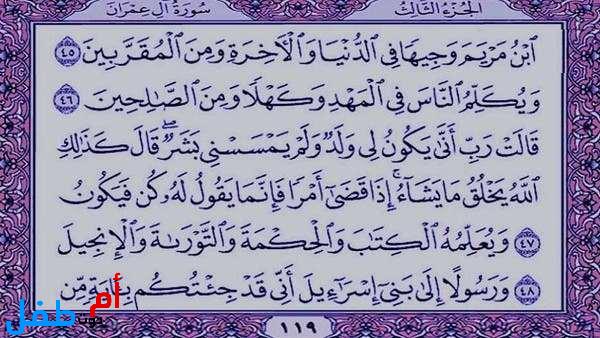 الجزء الثالث سورة آل عمران
ٱبْنُ مَرْيَمَ وَجِيهًا فِي ٱلدُّنْيَا وَٱلْأَخِرَةِ وَمِنَ ٱلْمُقَرَّبِينَ ٤٥
وَيُكَلِّمُ ٱلنَّاسَ فِي ٱلْمَهْدِ وَكَهْلًا وَمِنَ ٱلصَّٰلِحِينَ ٤٦
قَالَتْ رَبِّ أَنَّىٰ يَكُونُ لِي وَلَدٌ وَلَمْ يَمْسَسْنِي بَشَرٌۖ قَالَ كَذَٰلِكِ
ٱللَّهُ يَخْلُقُ مَا يَشَآءُۚ إِذَا قَضَىٰٓ أَمْرًا فَإِنَّمَا يَقُولُ لَهُۥ كُن فَيَكُونُ
٤٧ وَيُعَلِّمُهُ ٱلْكِتَٰبَ وَٱلْحِكْمَةَ وَٱلتَّوْرَىٰةَ وَٱلْإِنجِيلَ
٤٨ وَرَسُولًا إِلَىٰ بَنِيٓ إِسْرَٰٓءِيلَ أَنِّي قَدْ جِئْتُكُم بِـَٔايَةٍ مِّن
١١٩
أم طفل